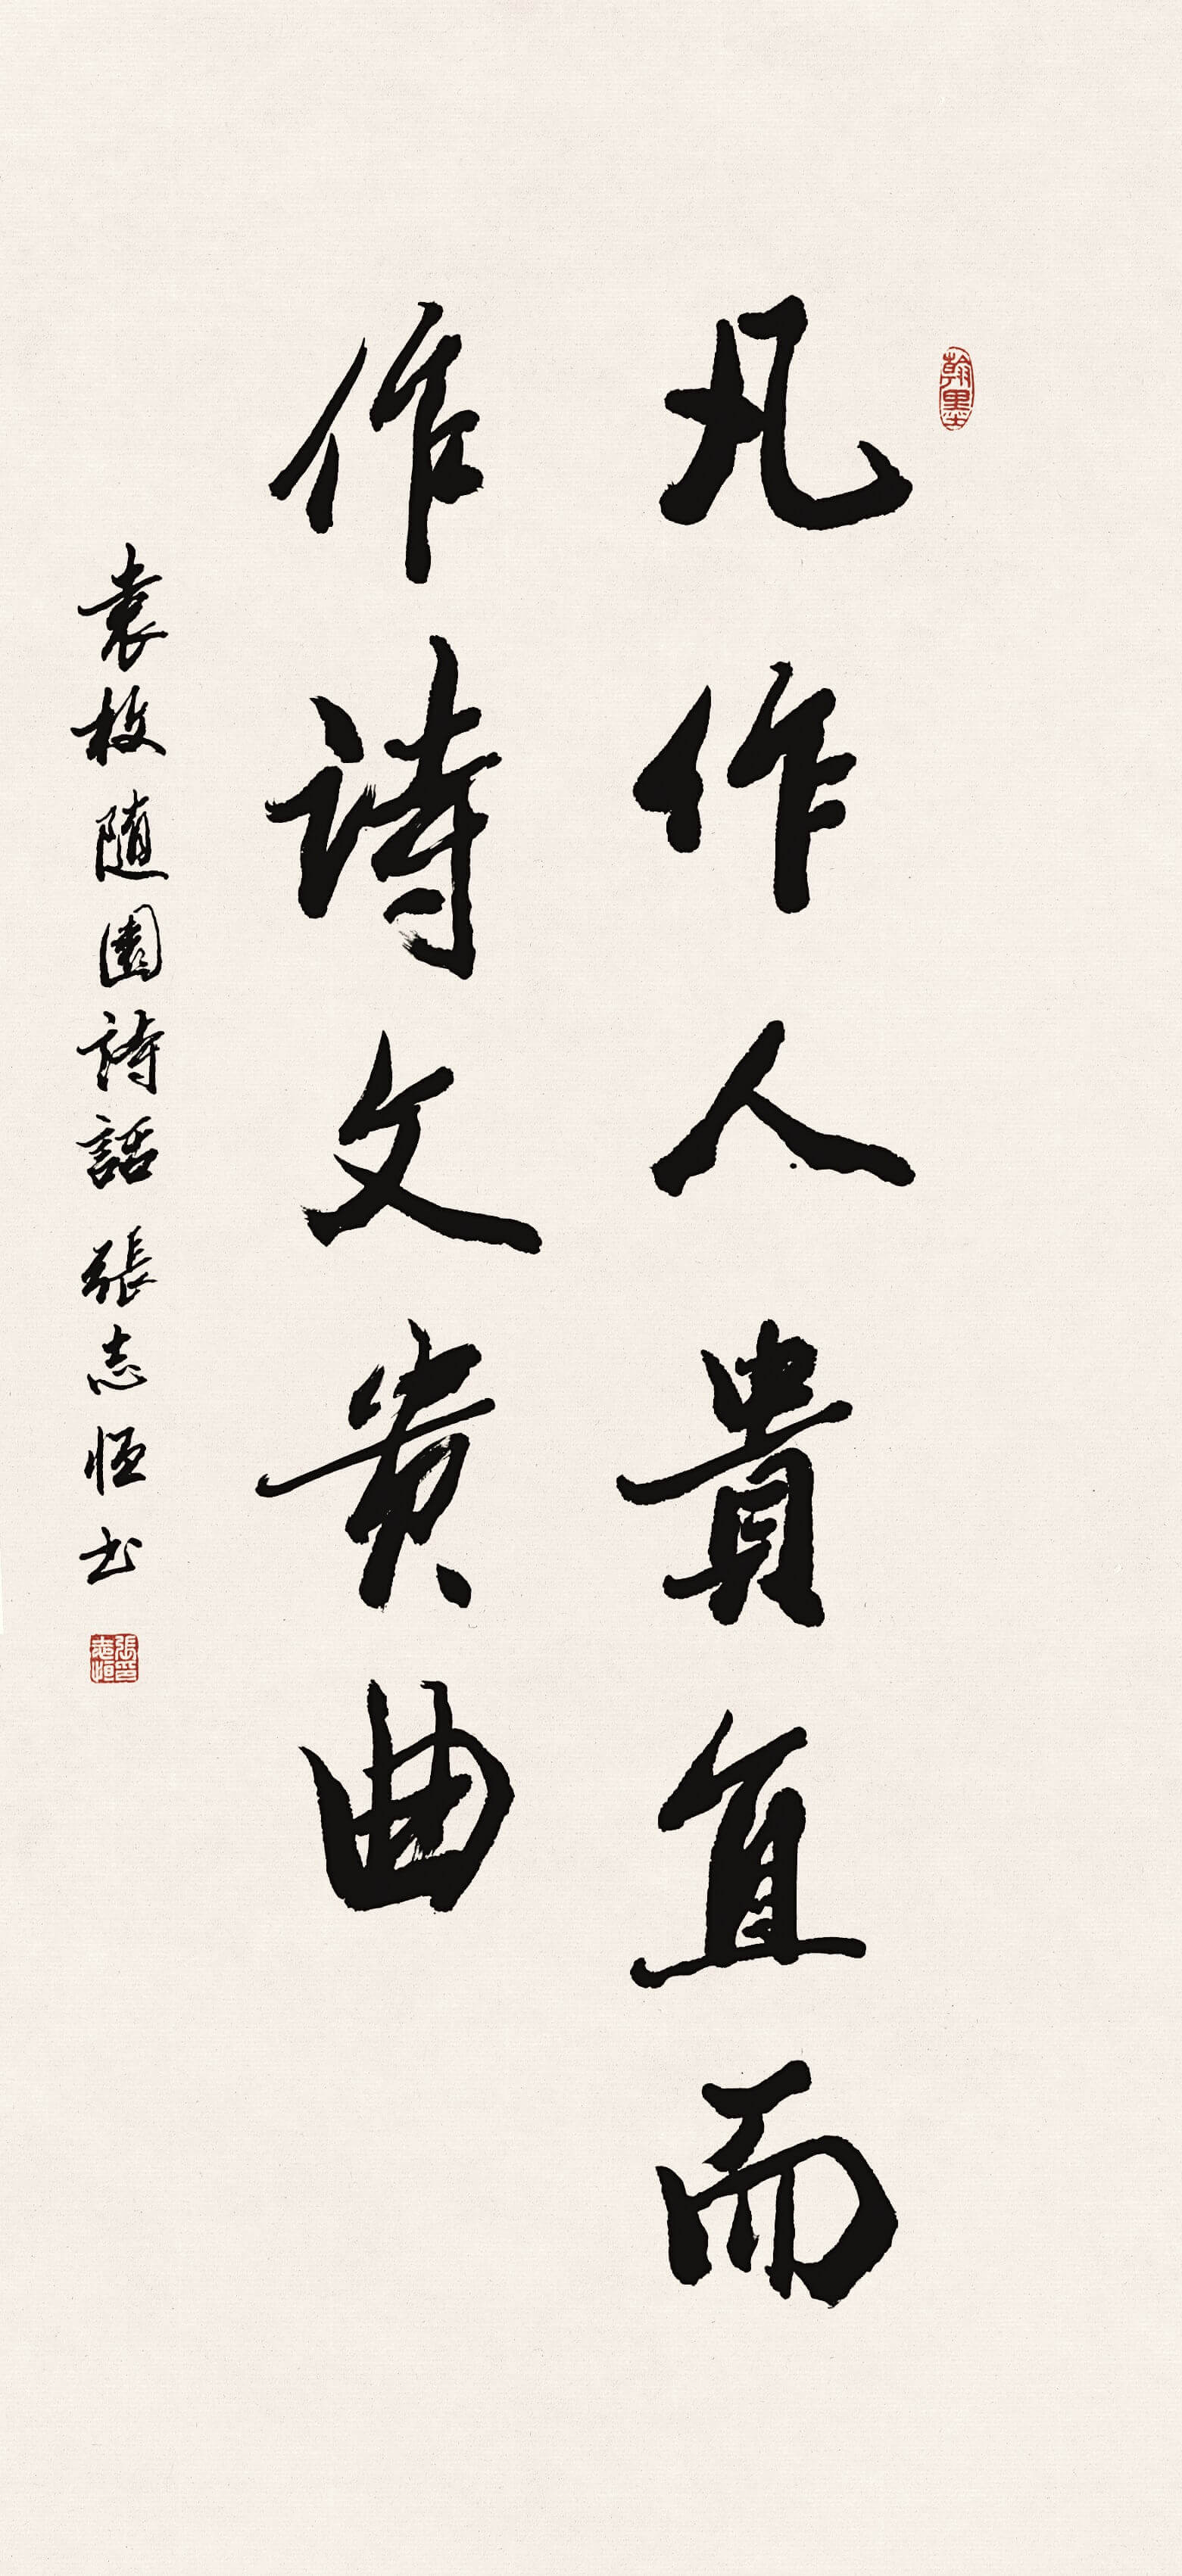 凡作人貴直而
作詩文貴曲
袁枚隨園詩話 張志恒书
翰墨
張志恒印